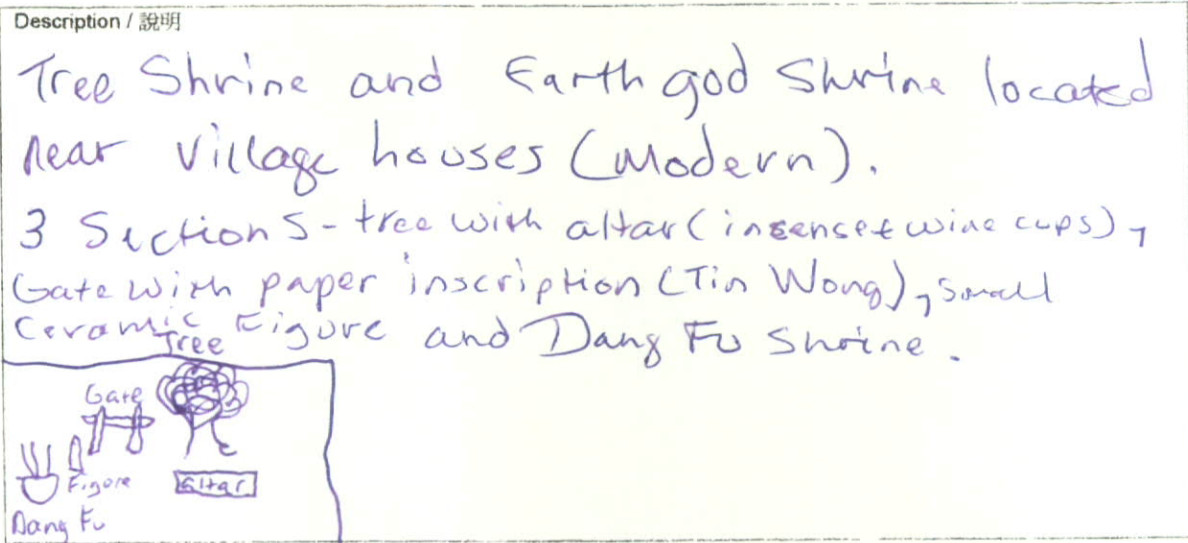 Description / 說明
Tree Shrine and Earth god Shrine located
near village houses (Modern).
3 Sections - tree with altar (insense+wine cups),
Gate with paper inscription (Tin Wong), small
Ceramic Figure and Dang Fu Shrine.
Tree
Gate
Figure
altar
Dang Fu